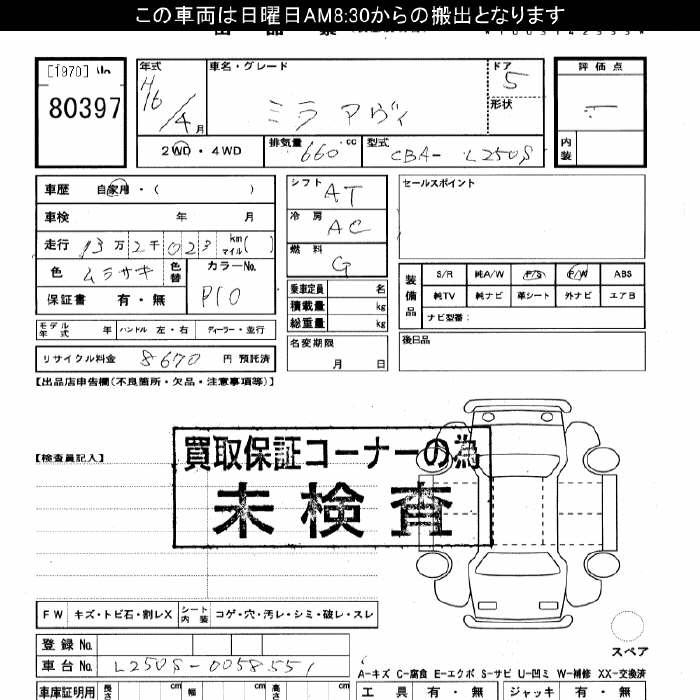 この車両は日曜日AM8:30からの搬出となります
[1970]
80397
年式
H16/4月
車名・グレード
ミラ アヴィ
ドア
5
形状
評価点
内装
2WD・4WD
排気量 660 cc
型式 CBA- L250S
車歴 自家用・( )
車検 年 月
走行 13万2千023 km マイル( )
色 ムラサキ 色替
カラーNo. P10
保証書 有・無
シフト AT
冷房 AC
燃料 G
乗車定員 名
積載量 kg
総重量 kg
名変期限
月 日
セールスポイント
装備品
S/R 純A/W P/S P/W ABS
純TV 純ナビ 革シート 外ナビ エアB
ナビ型番:
後日品
モデル年式 年 ハンドル 左・右 ディーラー・並行
リサイクル料金 8670 円 預託済
【出品店申告欄(不良箇所・欠品・注意事項等)】
【検査員記入】
買取保証コーナーの為
未検査
FW キズ・トビ石・割レX シート内装 コゲ・穴・汚レ・シミ・破レ・スレ
スペア
登録No.
車台No. L250S-0058551
A-キズ C-腐食 E-エクボ S-サビ U-凹ミ W-補修 XX-交換済
車庫証明用 長さ cm 幅 cm 高さ cm
工具 有・無 ジャッキ 有・無